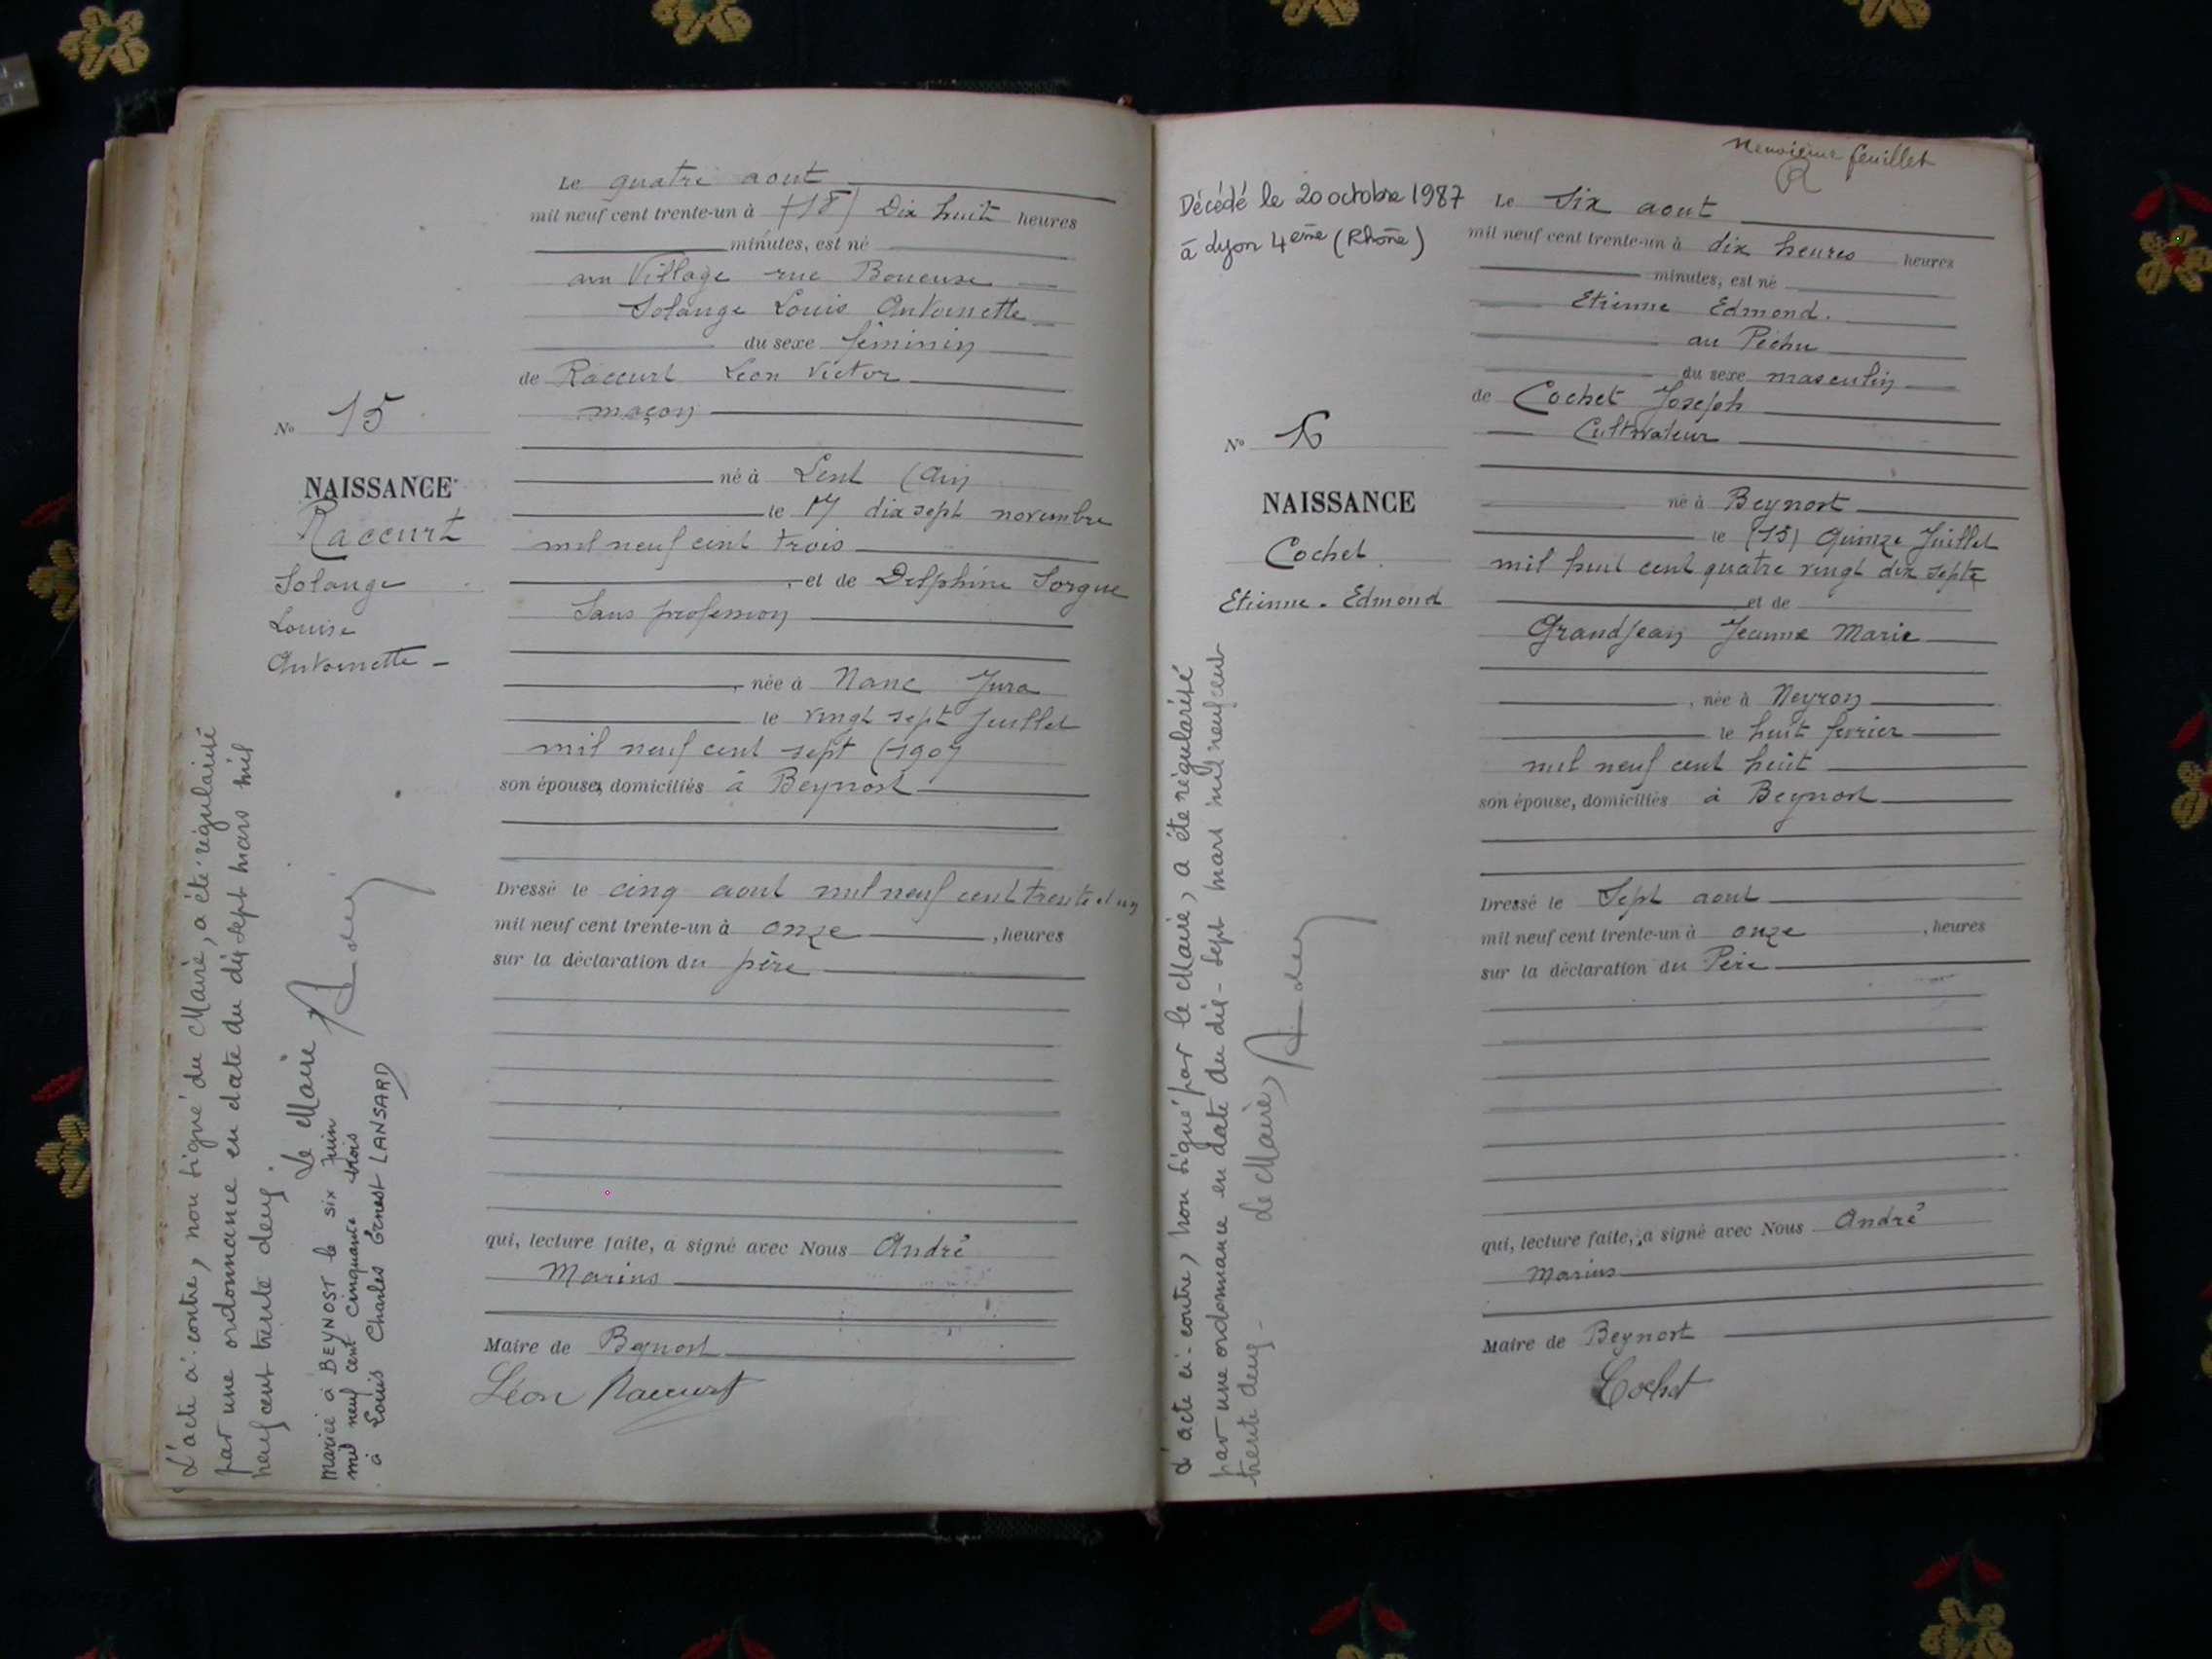 Le quatre aout
mil neuf cent trente-un à (18) Dix huit heures
minutes, est né
au Village rue Boueuse
Solange Louis Antoinette
du sexe féminin
de Raccurt Leon Victor
maçon
né à Lent (Ain
le 17 dix sept novembre
mil neuf cent trois
, et de Delphine Sorgue
Sans profession
, née à Nanc Jura
le vingt sept Juillet
mil neuf cent sept (1907
son épouse, domiciliés à Beynost
Dressé le cinq aout mil neuf cent trente et un
mil neuf cent trente-un à onze , heures
sur la déclaration du père
qui, lecture faite, a signé avec Nous André
Marius
Maire de Beynost
Léon Raccurt
No 15
NAISSANCE
Raccurt
Solange
Louise
Antoinette -
L'acte ci-contre, non signé du Maire, a été régularisé
par une ordonnance en date du dix sept mars mil
neuf cent trente deux.
Le Maire
mariée à BEYNOST le six juin
mil neuf cent cinquante trois
à Louis Charles Ernest LANSARD
feuillet
Décédé le 20 octobre 1987
à Lyon 4eme (Rhône)
Le Six aout
mil neuf cent trente-un à dix heures heures
minutes, est né
Etienne Edmond.
au Péchu
du sexe masculin
de Cochet Joseph
Cultivateur
né à Beynost
le (15) Quinze Juillet
mil huit cent quatre vingt dix sept
et de
Grandjean Jeanne Marie
, née à Neyron
le huit fevrier
mil neuf cent huit
son épouse, domiciliés à Beynost
Dressé le Sept aout
mil neuf cent trente-un à onze , heures
sur la déclaration du Père
qui, lecture faite, a signé avec Nous André
Marius
Maire de Beynost
Cochet
No 16
NAISSANCE
Cochet
Etienne. Edmond
L'acte ci-contre, non signé par le Maire, a été régularisé
par une ordonnance en date du dix-sept mars mil neuf cent
trente deux -
Le Maire,